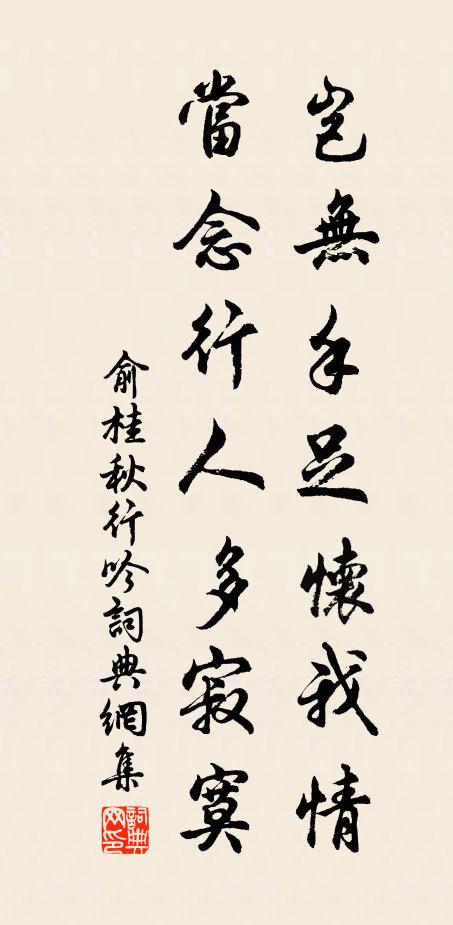 豈無手足懷我情
當念行人多寂寞
俞桂秋行吟詞典網集
詞典網印